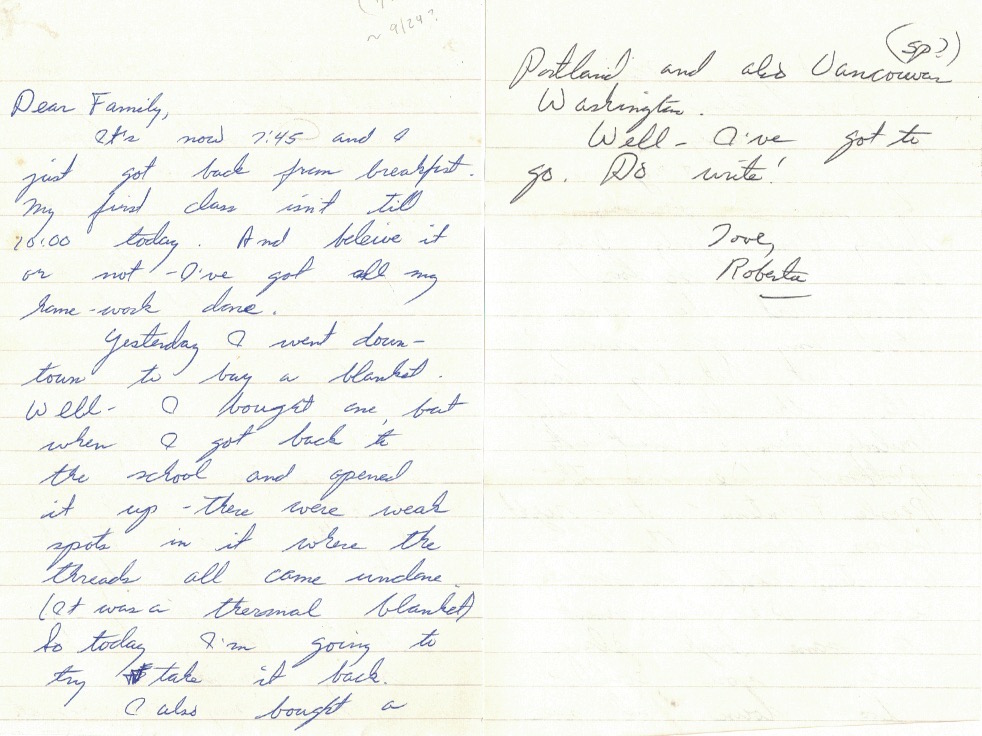 ~ 9/29?
Dear Family,
It's now 7:45 and I
just got back from breakfast.
My first class isn't till
10:00 today. And beleive it
or not - I've got all my
home-work done.
Yesterday I went down-
town to buy a blanket.
Well - I bought one, but
when I got back to
the school and opened
it up - there were weak
spots in it where the
threads all came undone.
(It was a thermal blanket)
So today I'm going to
try take it back.
I also bought a
(sp?)
Portland, and also Vancouver
Washington.
Well - I've got to
go. Do write!
Love,
Roberta